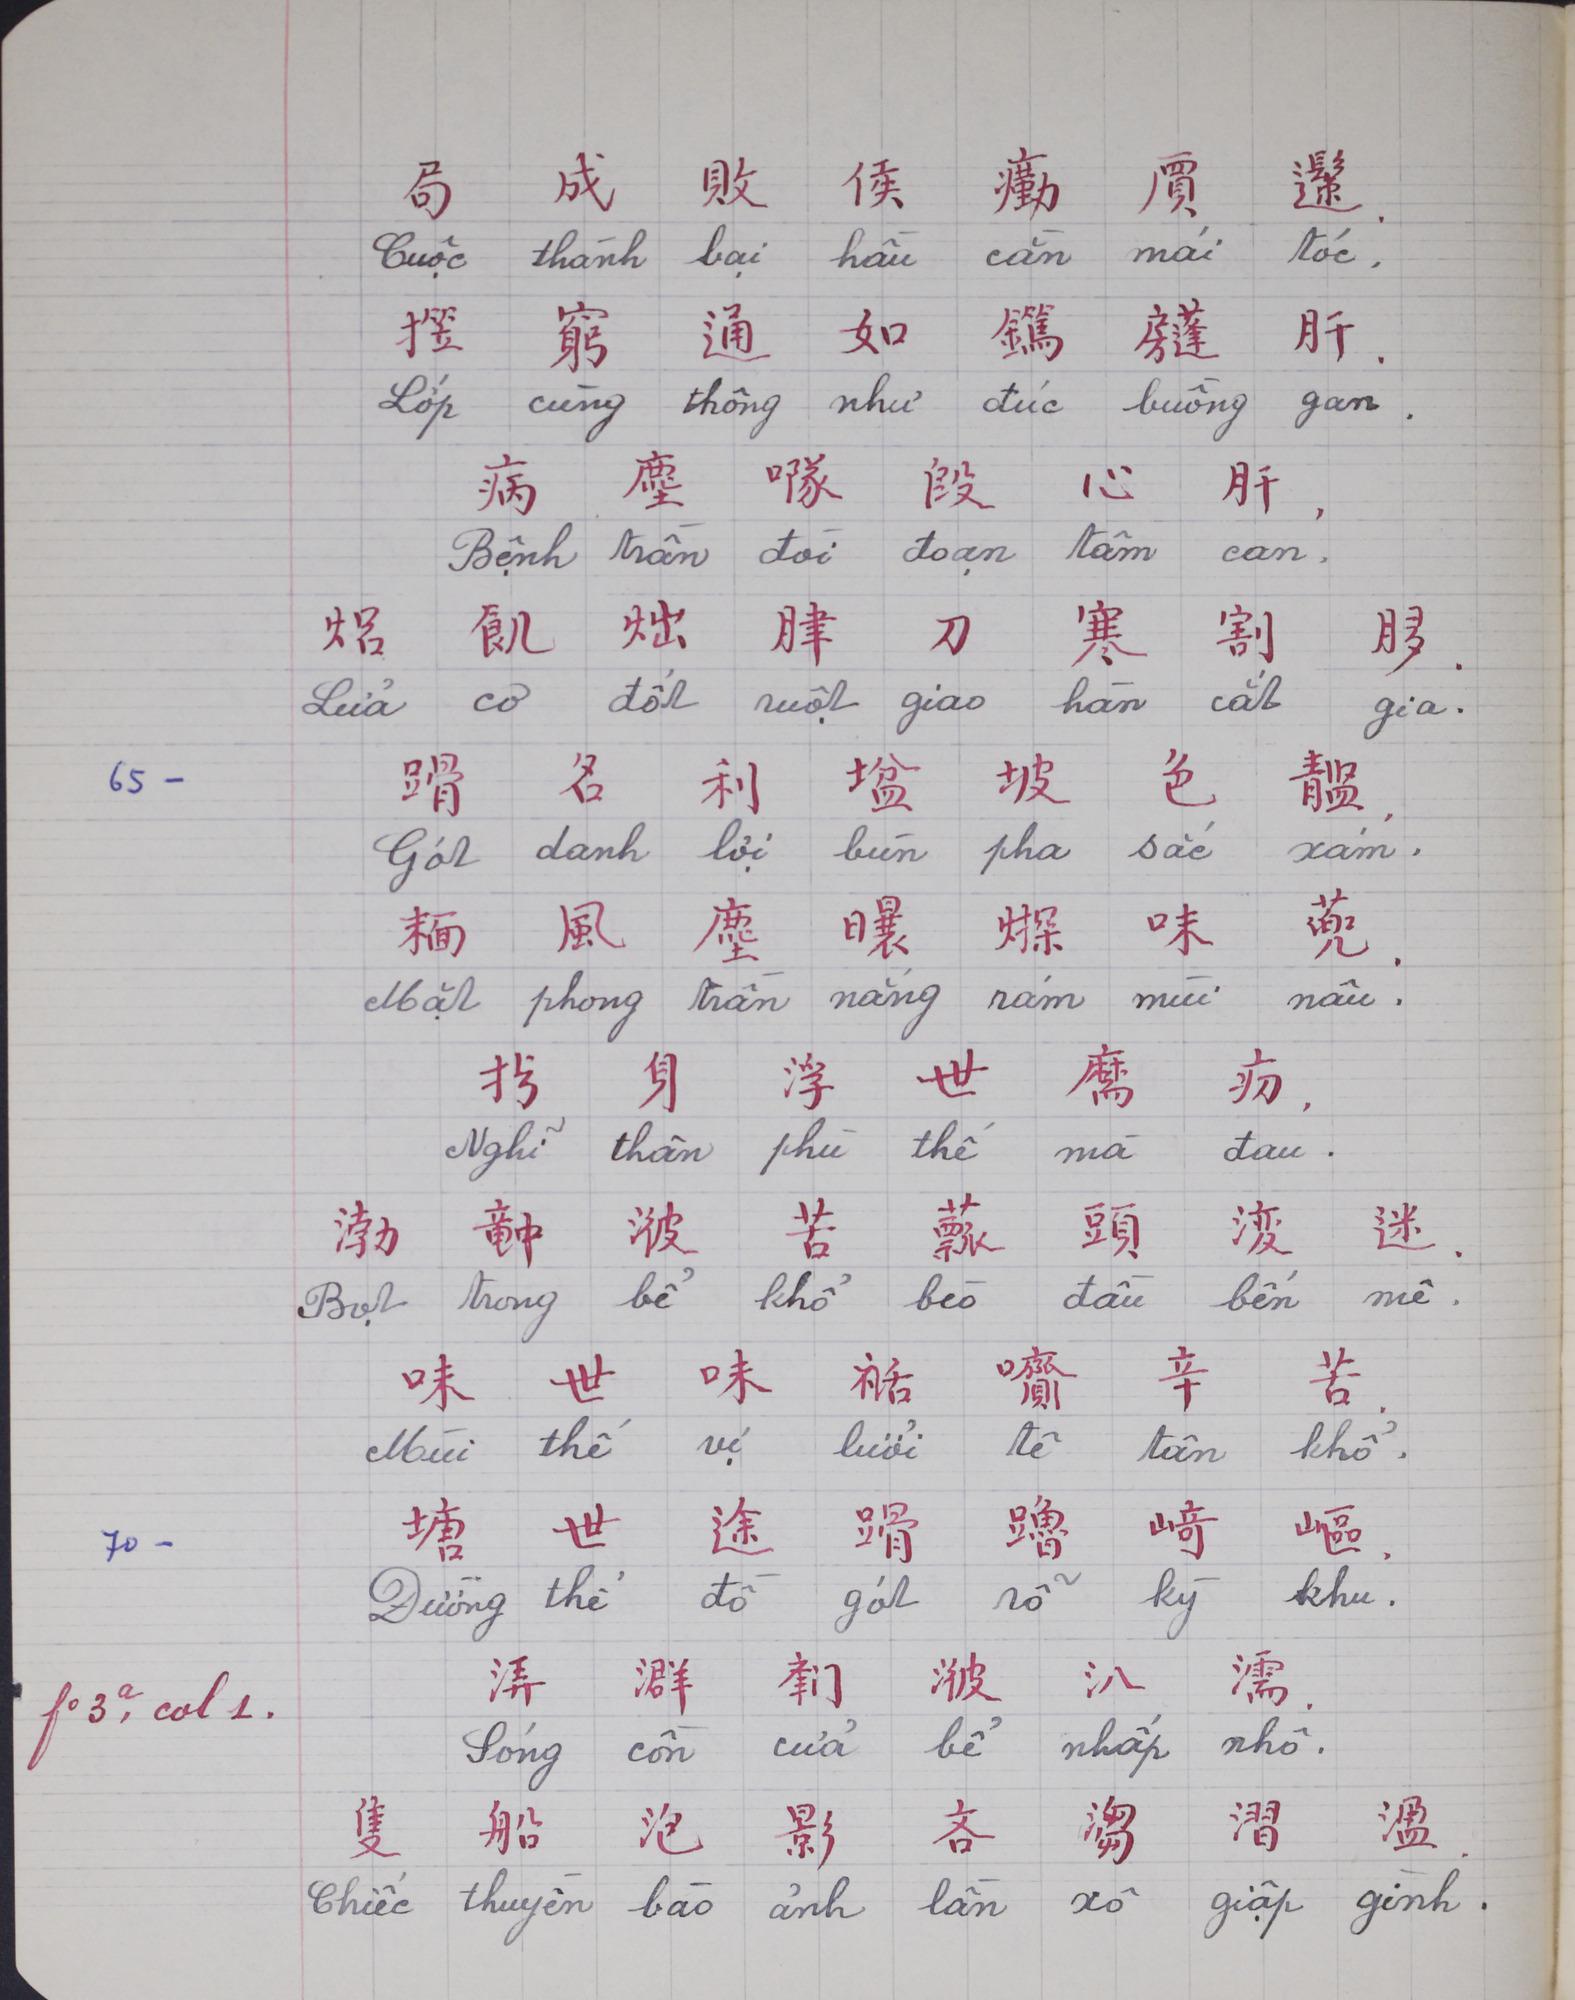 局 成 敗 矦 癆 賈
Cuộc thành bại hầu cằn mái tóc.
窮 通 如 鐫 肝.
Lớp cùng thông như đúc buồng gan.
病 塵 㗂 段 心 肝,
Bệnh trần đòi đoạn tâm can,
焒 飢 炪 肂 刀 寒 割 胗.
Lửa cơ đốt ruột giao hàn cắt gia.
65 -
䠇 名 利 坡 色
Gót danh lợi bùn pha sắc xám.
䩄 風 塵 㬢 燥 味
Mặt phong trần nắng rám mùi nâu.
身 浮 世 疠,
Nghĩ thân phù thế mà đau.
渤 𥪞 㴜 苦 頭 迷.
Bọt trong bể khổ bèo đầu bến mê.
味 世 味 嚌 辛 苦.
Mùi thế vị lưỡi tê tân khổ.
塘 世 途 䠇 崎 嶇.
Đường thế đồ gót rỗ kỳ khu.
fo 3a, col 1.
㴜 汃 濡.
Sóng cồn cửa bể nhấp nhô.
隻 船 泡 影 吝 㵢 漝 溫.
Chiếc thuyền bào ảnh lần xô giập gình.
70 -